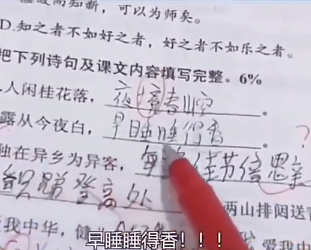 知新，可以为师矣。
D.知之者不如好之者，好之者不如乐之者。
把下列诗句及课文内容填写完整。6%
人闲桂花落，夜惊春山空。
露从今夜白，早睡睡得香。
独在异乡为异客，每佳节倍思亲
登高处 两山排闼送
我中华，健 爱我中
早睡睡得香！！！